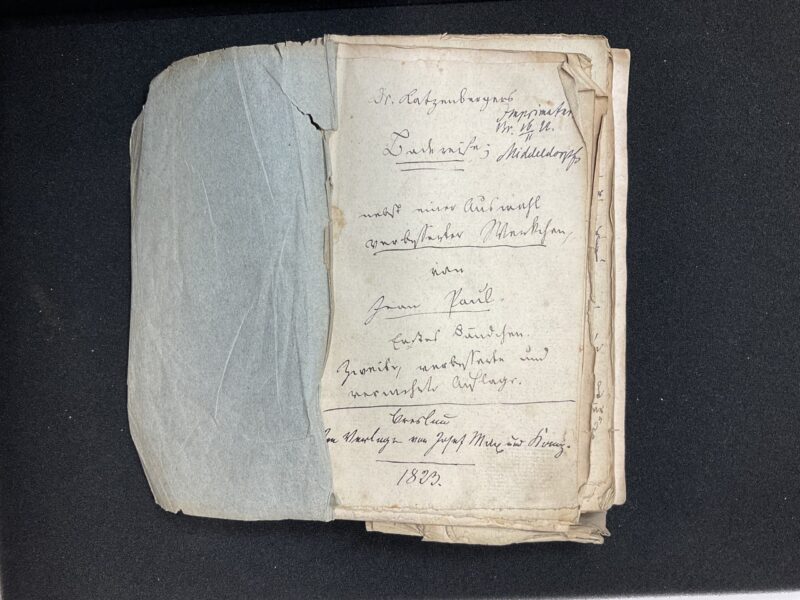 Dr. Katzenbergers
Imprimatur
Middeldorpf
Badereise;
nebst einer Auswahl
verbesserter Werkchen,
von
Jean Paul.
Erstes Bändchen.
Zweite, verbesserte und
vermehrte Auflage.
Breslau
Im Verlage von Josef Max und Komp.
1823.